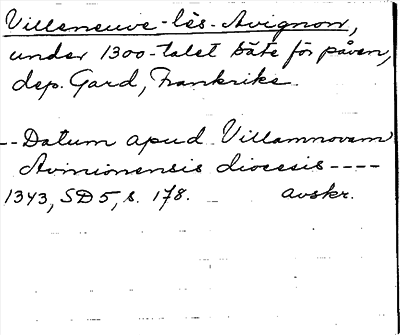 Villeneuve-lès-Avignon,
under 1300-talet säte för påven,
dep. Gard, Frankrike.
--Datum apud Villamnovam
Avinionensis diocesis----
1343, SD 5, s. 178. avskr.